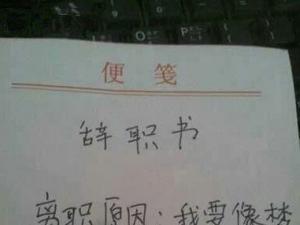 便笺
辞职书
离职原因：我要像梦